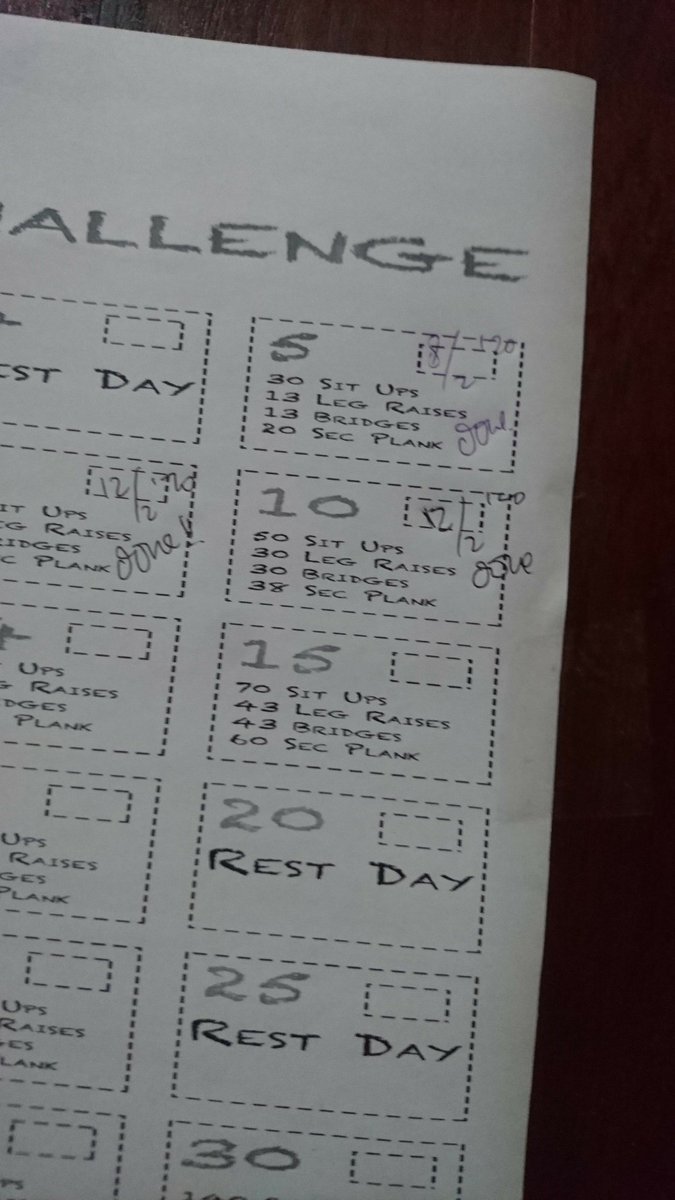 HALLENGE
EST DAY
5
8/2 -120
30 SIT UPS
13 LEG RAISES
13 BRIDGES
20 SEC PLANK
done
12/2 120
IT UPS
EG RAISES
IDGES
C PLANK
done
10
12/2 120
50 SIT UPS
30 LEG RAISES
30 BRIDGES
38 SEC PLANK
done
UPS
G RAISES
DGES
PLANK
15
70 SIT UPS
43 LEG RAISES
43 BRIDGES
60 SEC PLANK
UPS
RAISES
GES
PLANK
20
REST DAY
UPS
RAISES
ES
LANK
25
REST DAY
PS
30